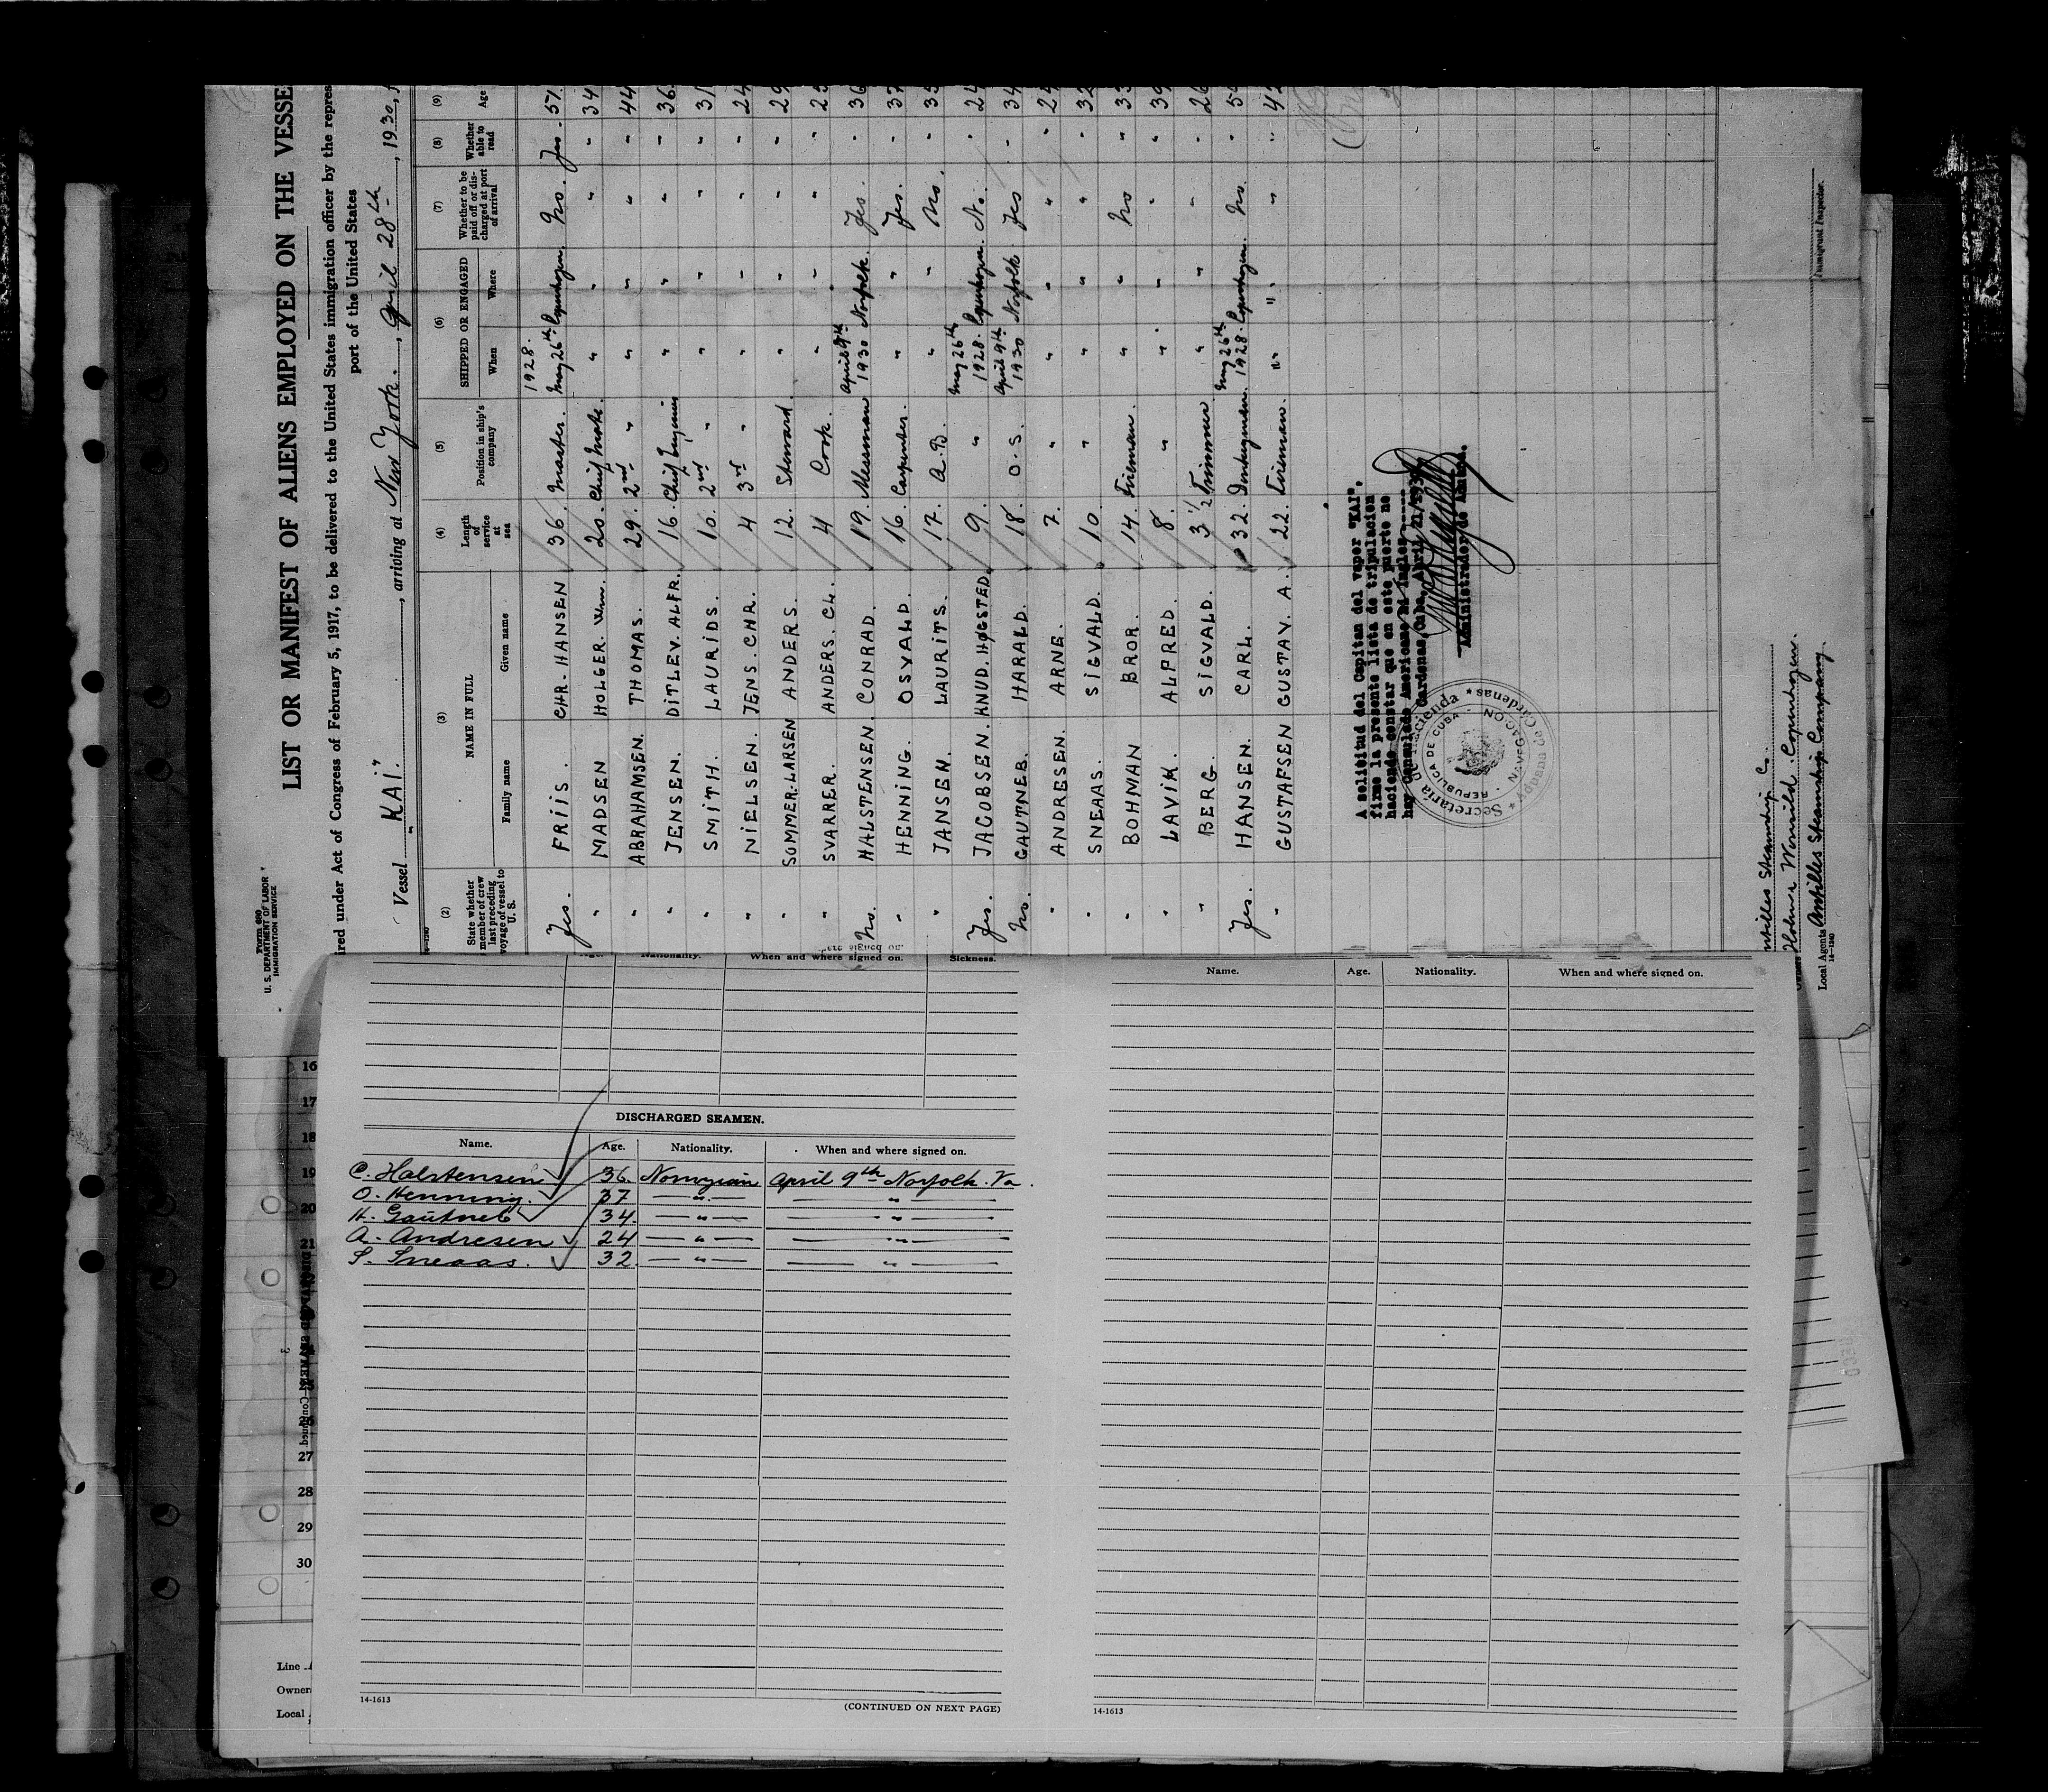 Form 680
U. S. DEPARTMENT OF LABOR
IMMIGRATION SERVICE
LIST OR MANIFEST OF ALIENS EMPLOYED ON THE VESSE
ired under Act of Congress of February 5, 1917, to be delivered to the United States immigration officer by the repres
port of the United States
Vessel "KAI", arriving at New York., April 28th, 1930, f
(2) (3) (4) (5) (6) (7) (8) (9)
State whether member of crew last preceding voyage of vessel to U. S. NAME IN FULL Length of service at sea Position in ship's company SHIPPED OR ENGAGED Whether to be paid off or discharged at port of arrival Whether able to read Age
Family name Given name When Where
Yes. FRIIS. CHR-HANSEN 36. Master. 1928. May 26th Copenhagen. No. Yes. 51.
" MADSEN HOLGER. Wm. 20. Chief Mate. " " " " 34
" ABRAHAMSEN. THOMAS. 29. 2nd " " " " " 44
" JENSEN. DITLEV. ALFR. 16. Chief Engineer " " " " 36.
" SMITH. LAURIDS. 10. 2nd " " " " " 31
" NIELSEN. JENS. CHR. 4 3rd " " " " " 24
" SOMMER-LARSEN ANDERS. 12. Steward. " " " " 29
" SVARRER. ANDERS. CH. 4 Cook. " " " "
No. HALSTENSEN. CONRAD. 19. Messman April 9th 1930 Norfolk. Yes. " 36
" HENNING. OSVALD. 16. Carpenter. " " Yes. " 37
" JANSEN. LAURITS. 17. A.B. " " No. "
Yes. JACOBSEN. KNUD. HØGSTED. 9. " May 26th 1928. Copenhagen. No. " 24
No. GAUTNEB. HARALD. 18. O.S. April 9th 1930 Norfolk Yes " 34
" ANDRESEN. ARNE. 7. " " " " " 24
" SNEAAS. SIGVALD. 10. " " " " " 32
" BOHMAN BROR. 14. Fireman. " " No " 33
" LAVIK. ALFRED. 8. " " " " " 39
" BERG. SIGVALD. 3 1/2 Trimmer " " " " 26
Yes. HANSEN. CARL. 32. Donkeyman. May 26th 1928. Copenhagen. No. "
" GUSTAFSEN GUSTAV. A. 22. Fireman. " " " " 42
A solicitud del Capitan del vapor "KAI",
firmo la presente lista de tripulacion
haciendo constar que en este puerto no
hay Consulado Americano ni Ingles
Cardenas, Cuba, Abril/21/1930
Administrador de Aduana.
Secretaria de Hacienda * Aduana de Cardenas *
REPUBLICA DE CUBA - NAVEGACION
Antilles Steamship Co.
Copenhagen.
Local Agents Antilles Steamship Company
14-1240
Immigrant Inspector.
Age. Nationality. When and where signed on. Sickness.
DISCHARGED SEAMEN.
Name. Age. Nationality. When and where signed on.
C. Halstensen 36. Norwegian April 9th Norfolk. Va.
O. Henning. 37 " "
H. Gautneb 34. " "
A. Andresen 24 " "
S. Sneaas. 32. " "
14-1613
(CONTINUED ON NEXT PAGE)
Name. Age. Nationality. When and where signed on.
14-1613
16
17
18
19
20
21
26
27
28
29
30
Line
Owner
Local